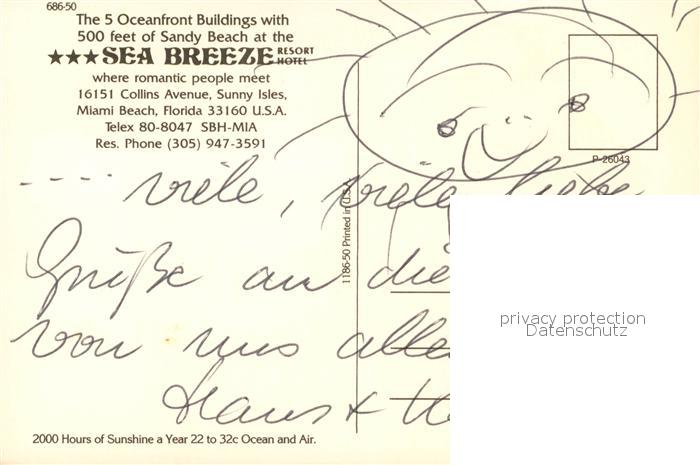 686-50
The 5 Oceanfront Buildings with
500 feet of Sandy Beach at the
★★★SEA BREEZE RESORT HOTEL
where romantic people meet
16151 Collins Avenue, Sunny Isles,
Miami Beach, Florida 33160 U.S.A.
Telex 80-8047 SBH-MIA
Res. Phone (305) 947-3591
P-26043
1186-50 Printed in U.S.A.
---- viele, viele liebe
Grüße an die
von uns alle
Hans +
privacy protection
Datenschutz
2000 Hours of Sunshine a Year 22 to 32c Ocean and Air.